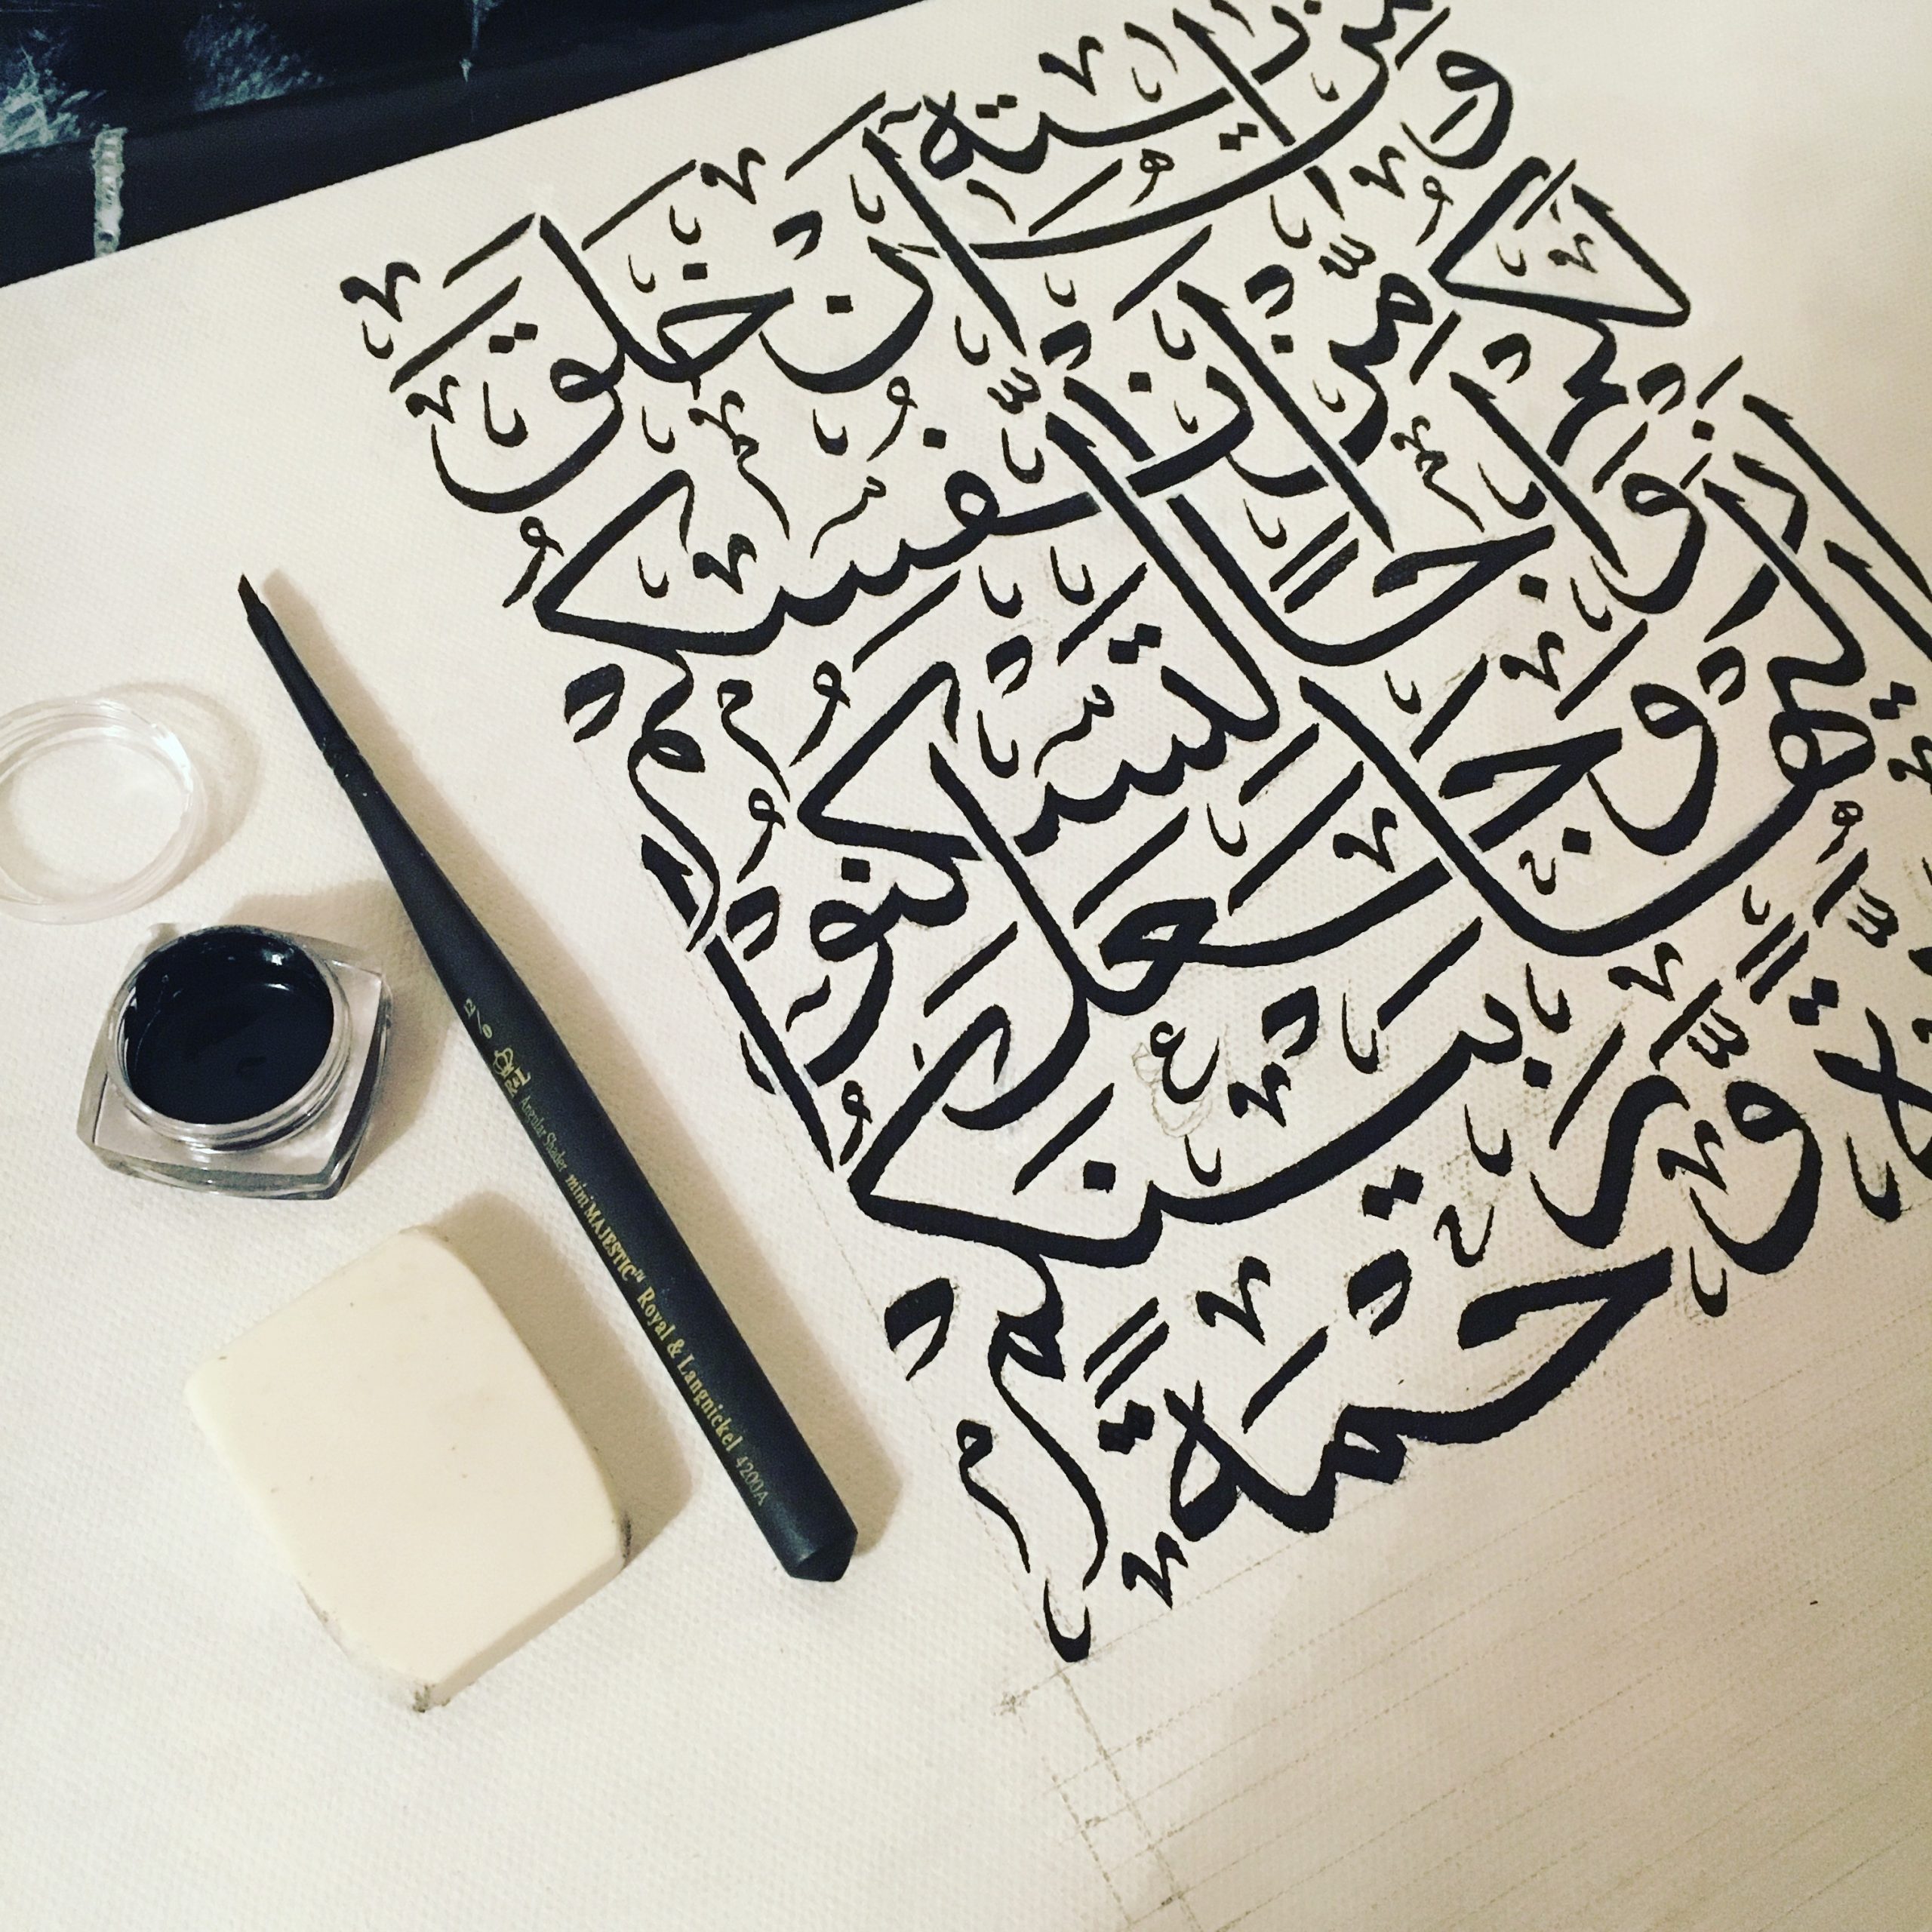 وَمِنْ آيٰتِهِ أَنْ خَلَقَ
لَكُمْ مِّنْ أَنْفُسِكُمْ
أَزْوَاجًا لِّتَسْكُنُوْا
إِلَيْهَا وَجَعَلَ بَيْنَكُمْ
مَّوَدَّةً وَّرَحْمَةً
Angular Shader miniMAJESTIC™ Royal & Langnickel 4200A